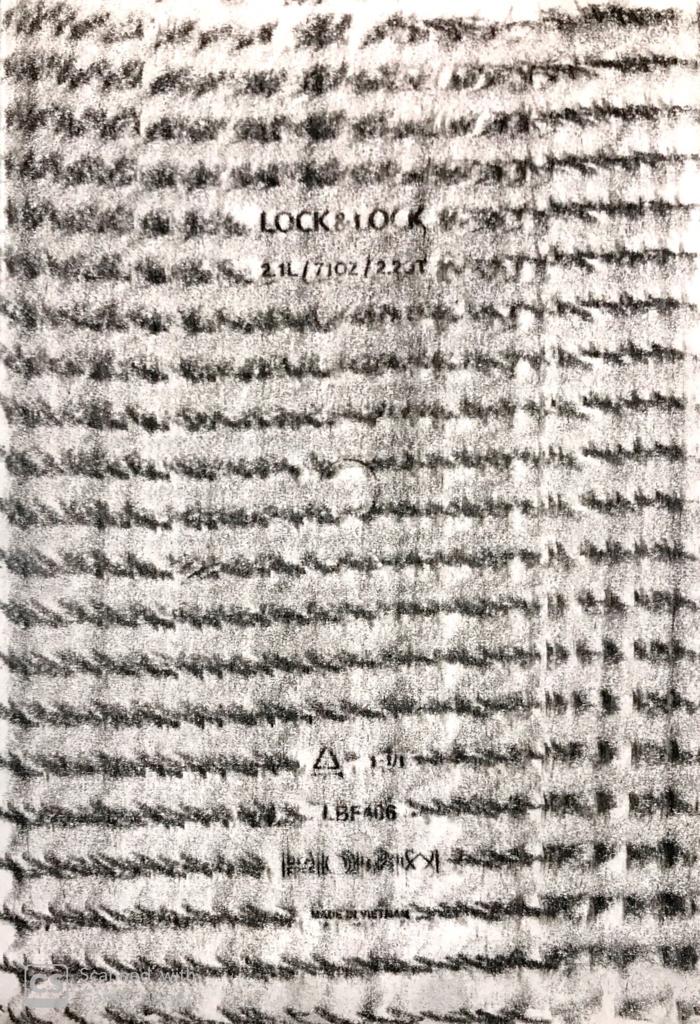 LOCK & LOCK
2.1L / 71OZ / 2.2QT
LBF406
MADE IN VIETNAM
CS Scanned with